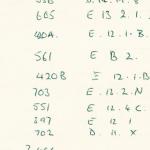 605 E. 13. 2. 1.
40A. E. 12. 1. B.
561 E B 2.
420B E 12. 1. B
703 E. 13. 2. N
551 E. 12. 4 C.
397 E 12 1
702 D. 11. X